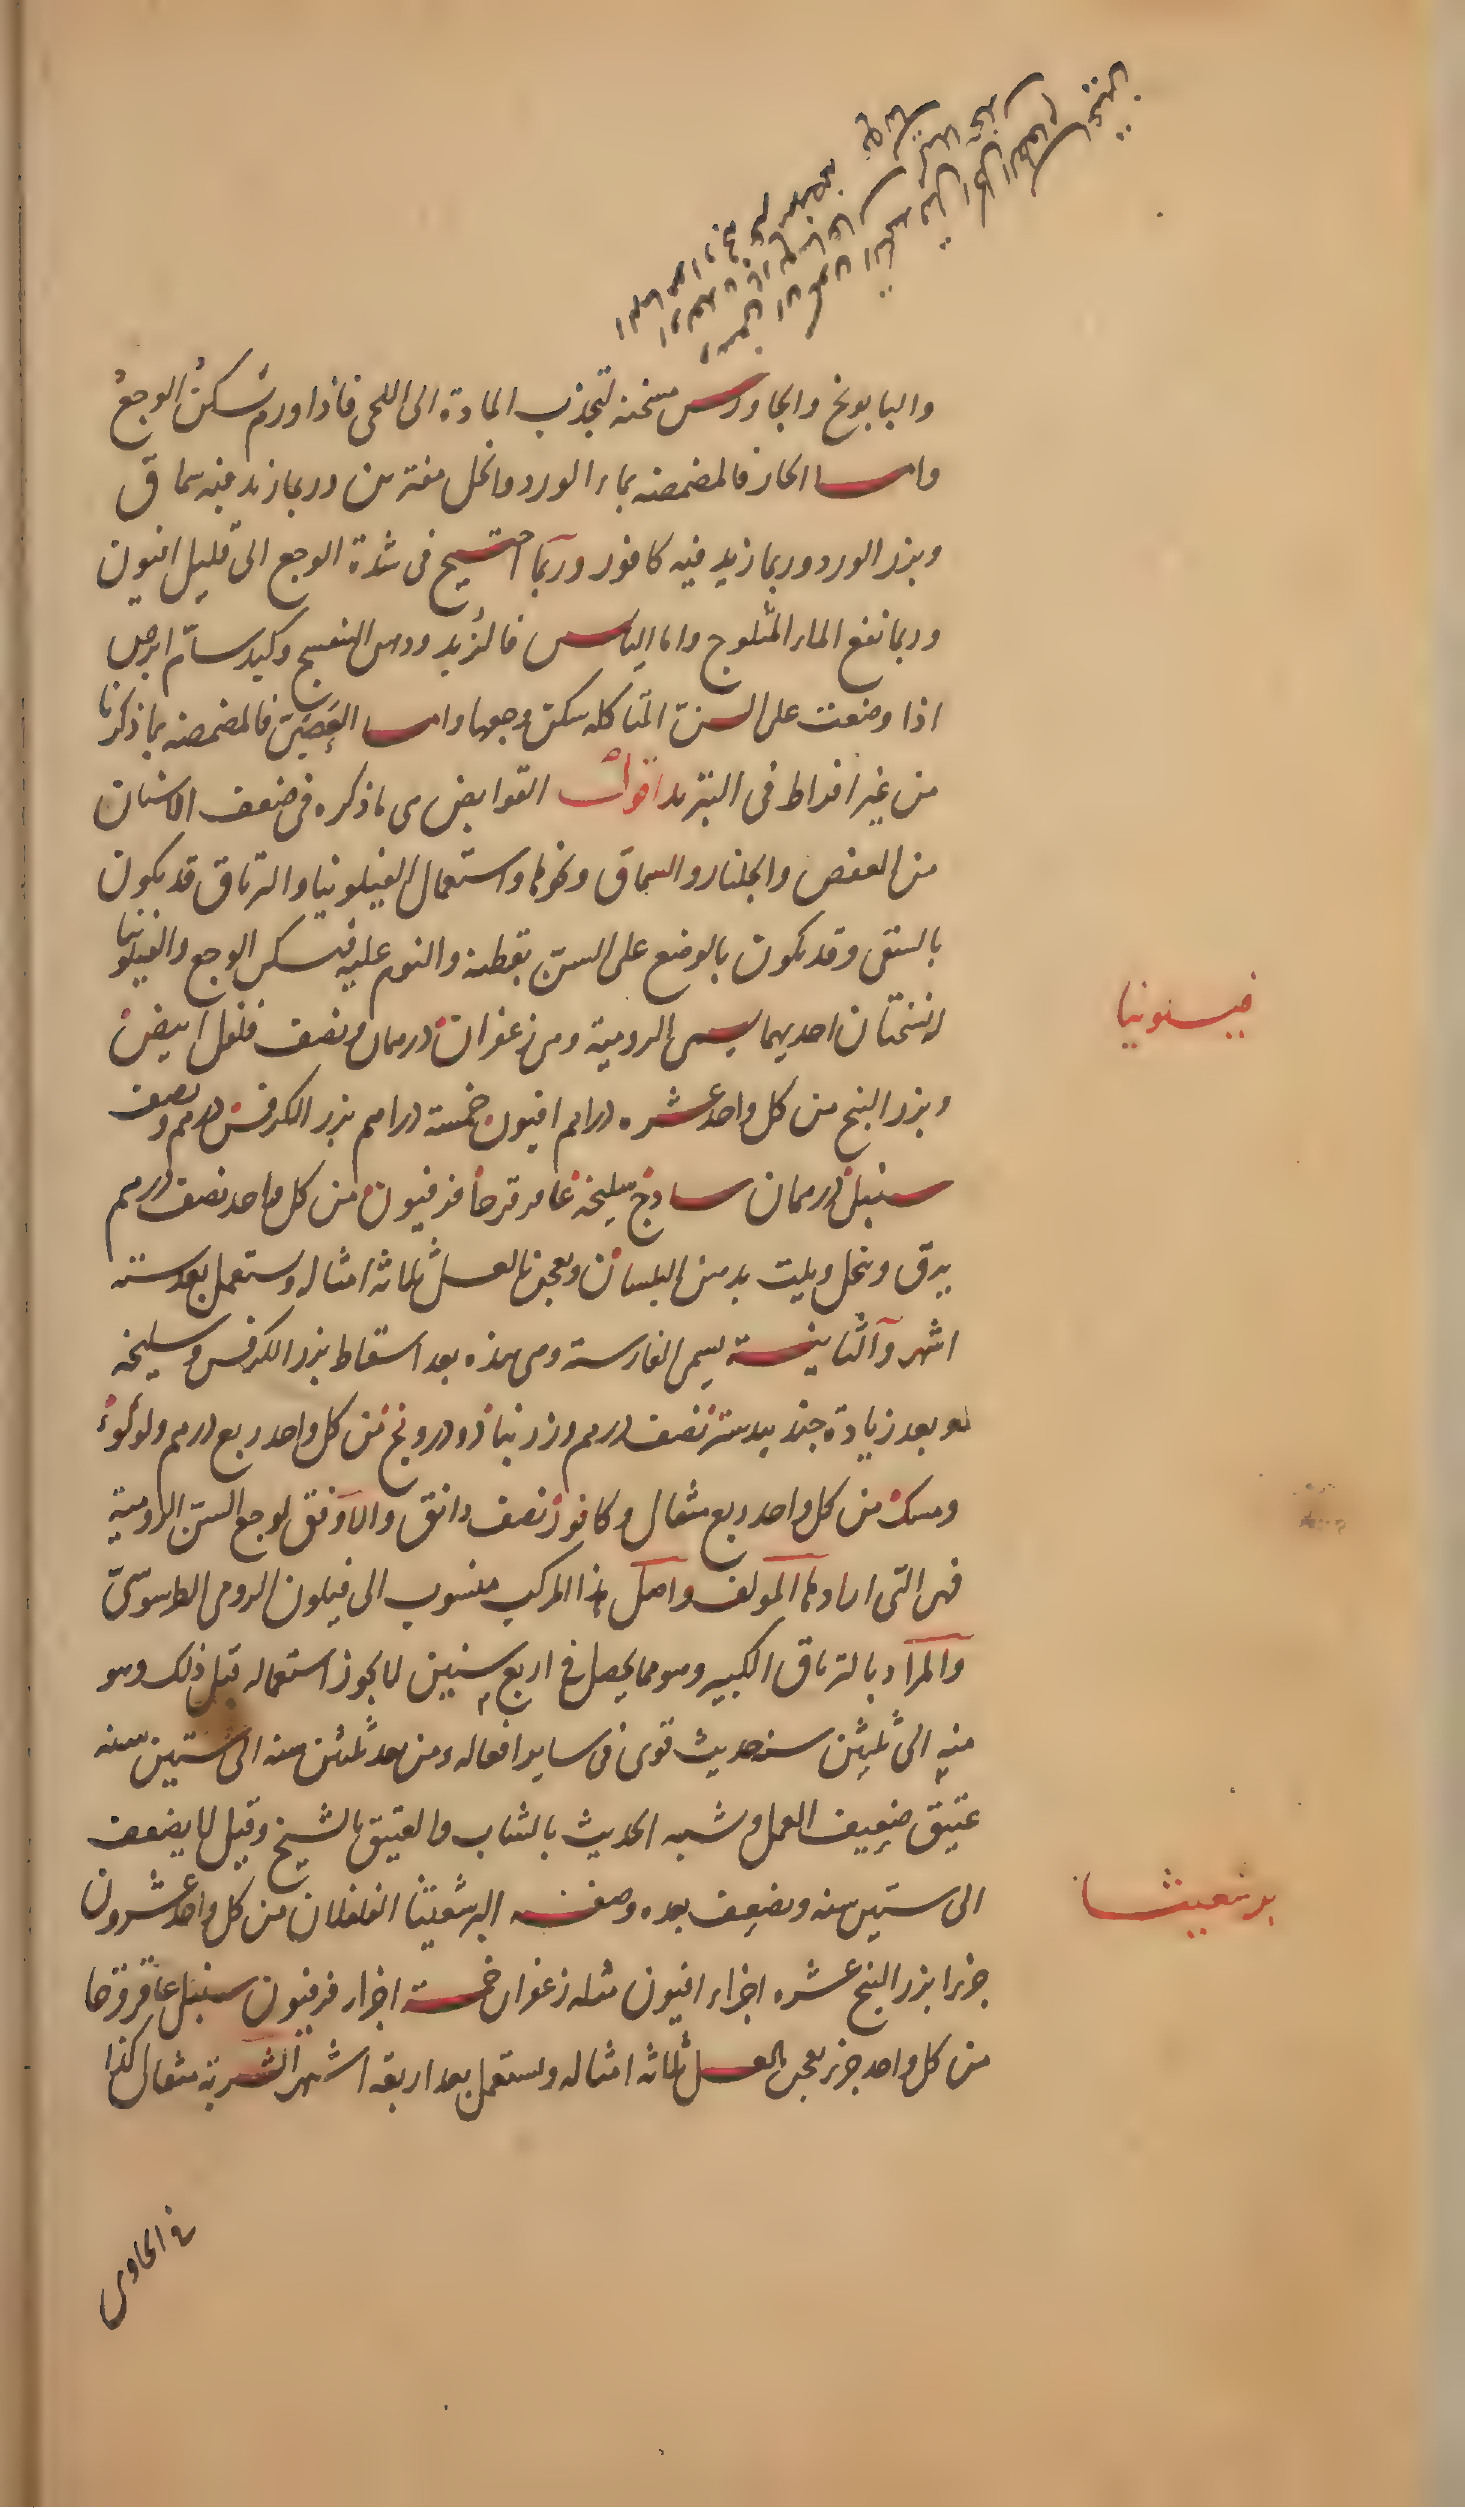 والبابونج والجاورس مسخنه لتجذب المادة الى اللحى فاذا ورم سكن الوجع
واما الحار فالمضمضه بماء الورد والخل مفترين وربما زيد فيه سماق
وبزر الورد وربما زيد فيه كافور وربما احتيج فى شدة الوجع الى قليل افيون
وربما نفع الماء المثلوج واما اليابس فالزبد ودهن البنفسج وكبد سام ابرص
اذا وضعت على السن المتاكله سكن وجعها واما العصبى فالمضمضه بما ذكرنا
من غير افراط فى التبريد اقول القوابض هى ما ذكره فى ضعف الاسنان
من العفص والجلنار والسماق ونحوها واستعمال الفيلونيا والترياق قد يكون
بالسقى وقد يكون بالوضع على السن بقطنه والنوم عليه فيسكن الوجع والفيلونيا
له نسختان احديهما يسمى الرومية وهى زعفران درهمان ونصف فلفل ابيض
وبزر البنج من كل واحد عشره دراهم افيون خمسة دراهم بزر الكرفس درهم ونصف
سنبل درهمان ساذج سليخه عاقرقرحا فرفيون من كل واحد نصف درهم
يدق وينخل ويلت بدهن البلسان ويعجن بالعسل ثلاثة امثاله ويستعمل بعد ستة
اشهر والثانية يسمى الفارسية وهى هذه بعد اسقاط بزر الكرفس وسليخه
وبعد زيادة جند بيدستر نصف درهم وزرنباد ودرونج من كل واحد ربع درهم ولؤلؤ
ومسك من كل واحد ربع مثقال وكافور نصف دانق والاوفق لوجع السن الرومية
فهى التى ارادها المولف واصل هذا المركب منسوب الى فيلون الرومى الطرسوسى
والمراد بالترياق الكبير وهو مما يحصل فى اربع سنين لا يجوز استعماله قبل ذلك وهو
منه الى ثلثين سنه حديث قوى فى ساير افعاله ومن بعد ثلثين سنه الى ستين سنه
عتيق ضعيف العمل وشبه الحديث بالشاب والعتيق بالشيخ وقيل لا يضعف
الى ستين سنه ويضعف بعده وصفه البرشعيثا الفلفلان من كل واحد عشرون
جزءا بزر البنج عشره اجزاء افيون مثله زعفران خمسة اجزاء فرفيون سنبل عاقرقرحا
من كل واحد جزء يعجن بالعسل ثلاثه امثاله ويستعمل بعد اربعة اشهر الشربة مثقال كذا
فيلونيا
برشعيثا
فى الحاوى